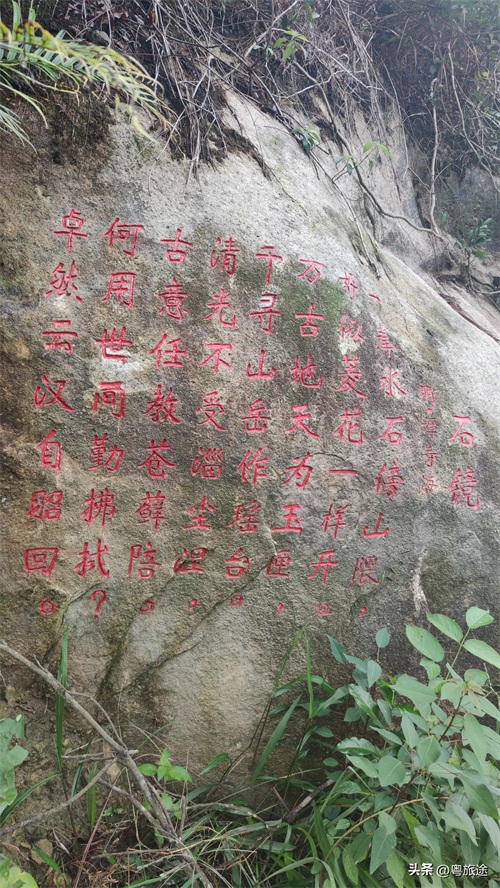 石镜
明·
一水石傍山隈，
似菱花一样开。
万古地天为玉匣，
千寻山岳作瑶台。
清光不受淄尘涅，
古意任教苍藓陪。
何用世间勤拂拭？
卓然云汉自昭回。
头条 @粤旅途